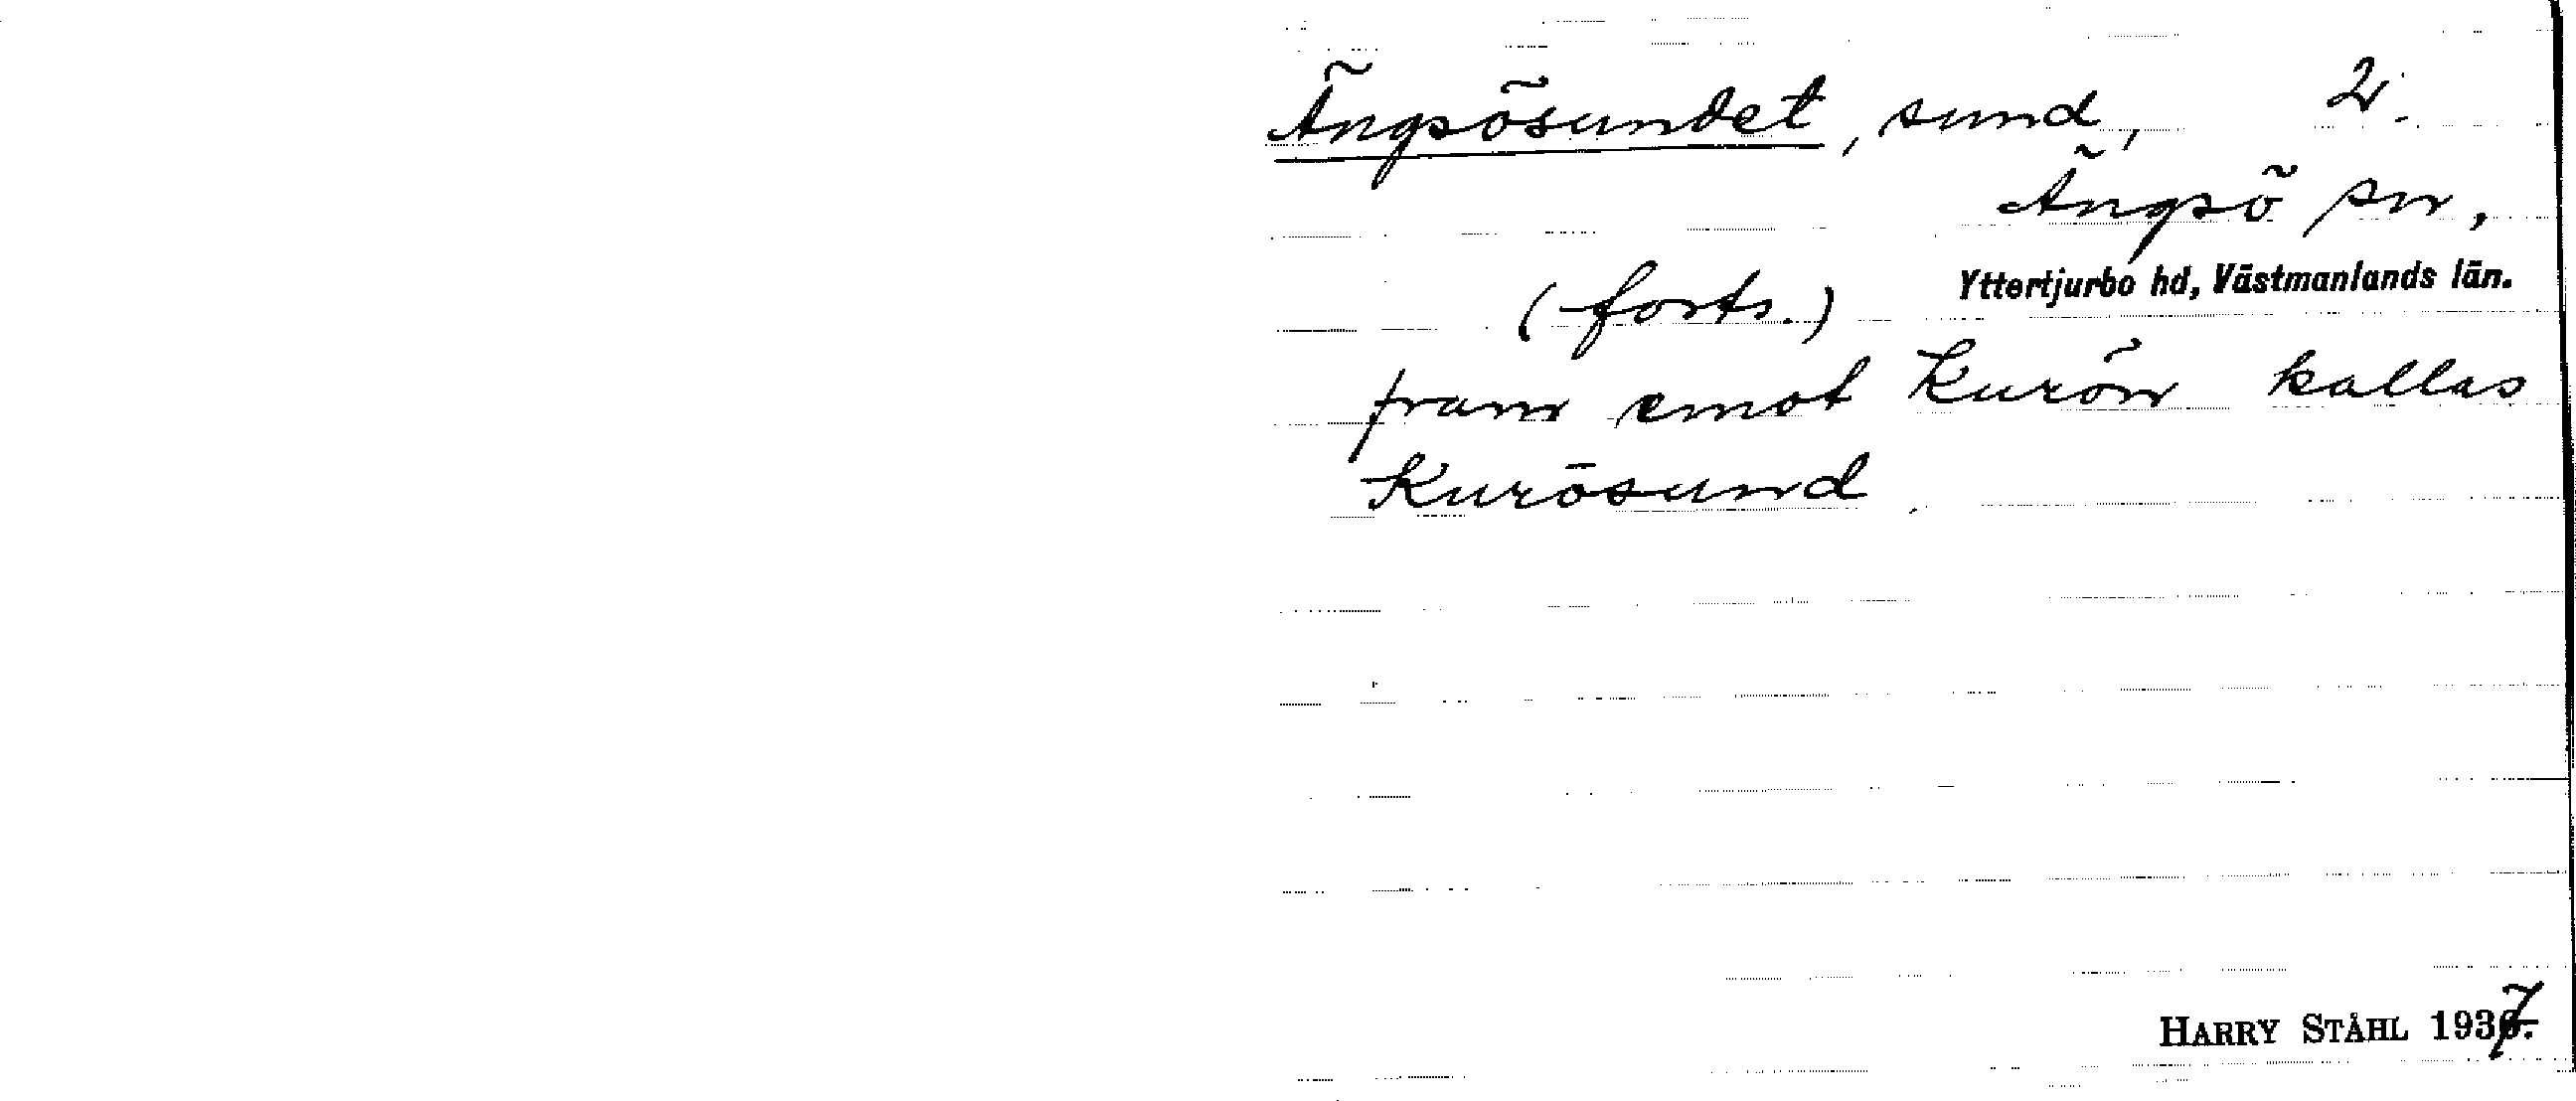 Ängsösundet, sund, 2.
Ängsö sn,
Yttertjurbo hd, Västmanlands län.
(forts.)
fram emot Kurön kallas
Kurösund
HARRY STÅHL 1937.